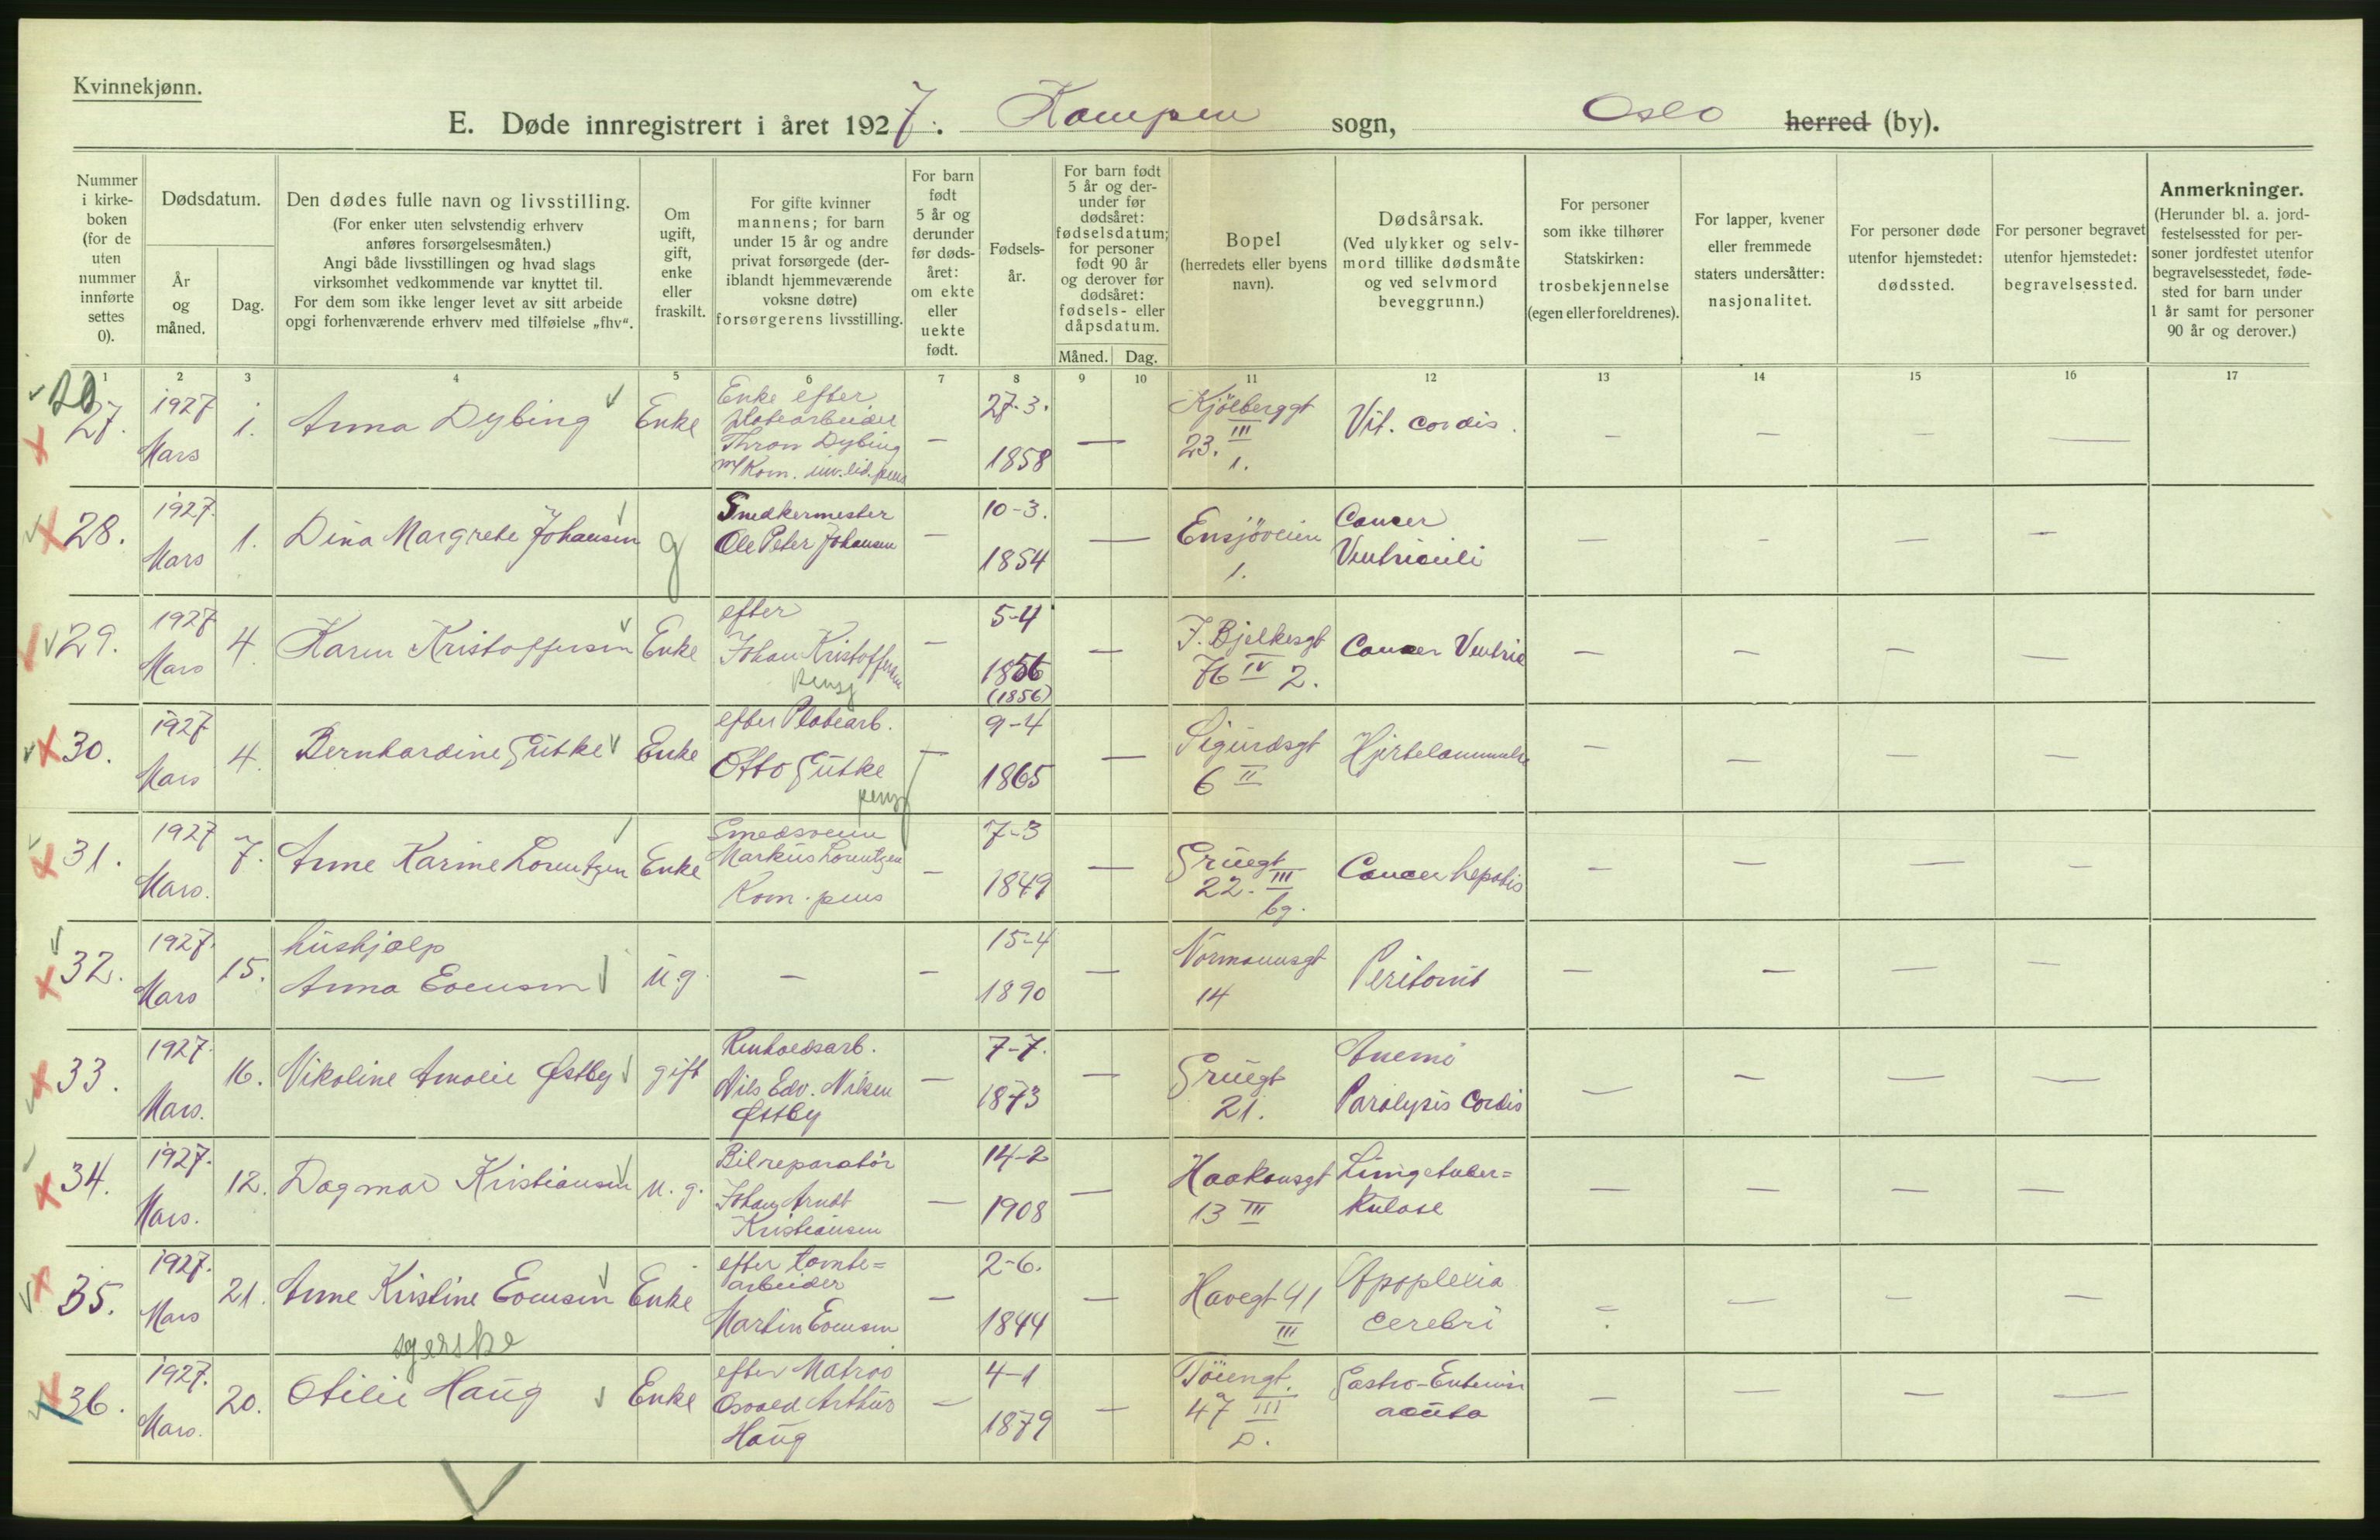 Kvinnekjønn.
E. Døde innregistrert i året 1927. Kampen sogn, Oslo herred (by).
Nummer i kirke-boken (for de uten nummer innførte settes 0).
Dødsdatum.
År og måned.
Dag.
Den dødes fulle navn og livsstilling.
(For enker uten selvstendig erhverv
anføres forsørgelsesmåten.)
Angi både livsstillingen og hvad slags
virksomhet vedkommende var knyttet til.
For dem som ikke lenger levet av sitt arbeide
opgi forhenværende erhverv med tilføielse „fhv“.
Om ugift, gift, enke eller fraskilt.
For gifte kvinner
mannens; for barn
under 15 år og andre
privat forsørgede (der-
iblandt hjemmeværende
voksne døtre)
forsørgerens livsstilling.
For barn født 5 år og derunder før døds-året: om ekte eller uekte født.
Fødsels-år.
For barn født
5 år og der-
under før
dødsåret:
fødselsdatum;
for personer
født 90 år
og derover før
dødsåret:
fødsels- eller
dåpsdatum.
Måned. Dag.
Bopel
(herredets eller byens
navn).
Dødsårsak.
(Ved ulykker og selv-
mord tillike dødsmåte
og ved selvmord
beveggrunn.)
For personer
som ikke tilhører
Statskirken:
trosbekjennelse
(egen eller foreldrenes).
For lapper, kvener
eller fremmede
staters undersåtter:
nasjonalitet.
For personer døde
utenfor hjemstedet:
dødssted.
For personer begravet
utenfor hjemstedet:
begravelsessted.
Anmerkninger.
(Herunder bl. a. jord-
festelsessted for per-
soner jordfestet utenfor
begravelsesstedet, føde-
sted for barn under
1 år samt for personer
90 år og derover.)
1 2 3 4 5 6 7 8 9 10 11 12 13 14 15 16 17
27. 1927 Mars 1. Anna Dybing Enke Enke efter platearbeider Thron Dybing m/Kom. — 27-3. 1858 — Kjölberggt 23. III 1. Vit. cordis. — — — —
28. 1927. Mars 1. Dina Margrete Johansen g Snedkermester Ole Peter Johansen — 10-3. 1854 — Ensjöveien 1. Cancer Ventriculi — - — —
29. 1927 Mars 4. Karen Kristoffersen Enke efter Johan Kristoffersen pensj — 5-4 1856 (1856) — J. Bjelkesgt 76 IV 2. Cancer Ventric — — — —
30. 1927 Mars 4. Bernhardine Gütke Enke efter Platearb. Otto Gütke pensj — 9-4 1865 — Sigurdsgt 6 II Hjertelammelse — — — —
31. 1927 Mars. 7. Anne Karine Lorentzen Enke Smedsvenn Markus Lorentzen Kom. pens — 7-3 1849 — Grüegt 22. III bg. Cancer hepatis — — — —
32. 1927. Mars 15. hushjælp Anna Evensen u.g. — — 15-4 1890 — Normannsgt 14 Peritonit — — — —
33. 1927. Mars. 16. Nikoline Amalie Østby gift Renholdsarb. Nils Edv. Nilsen Østby — 7-7. 1873 — Grüegt 21. Anemi Paralysis Cordis — — — —
34. 1927. Mars. 12. Dagmar Kristiansen u.g. Bilreparatör Johan Arndt Kristiansen — 14-2 1908 — Haakonsgt 13 III Lungetuber= kulose — — — —
35. 1927. Mars 21. Anne Kristine Evensen Enke efter tomte= arbeider Martin Evensen — 2-6. 1844 — Havegt 41 III Apoplexia cerebri — — — —
36. 1927. Mars. 20. syerske Otilie Haug Enke efter Matros Osvald Arthur Haug — 4-1 1879 — Töiengt. 47 III D. Gastro-Enterit acuta — — — —